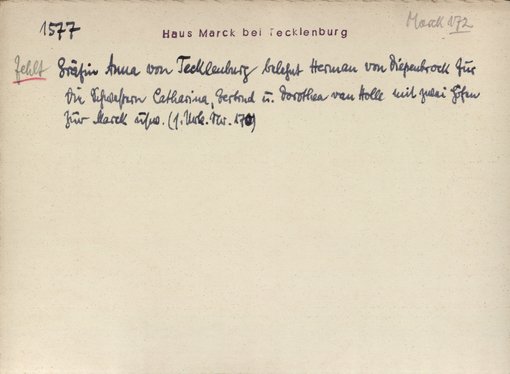 1577
Haus Marck bei Tecklenburg
Marck 172
fehlt
Gräfin Anna von Tecklenburg belehnt Herman von Diepenbrock für
die Schwestern Catharina, Gertrud u. Dorothea von Holle mit zwei Höfen
zur Marck usw. (s. Urk. Nr. 170)